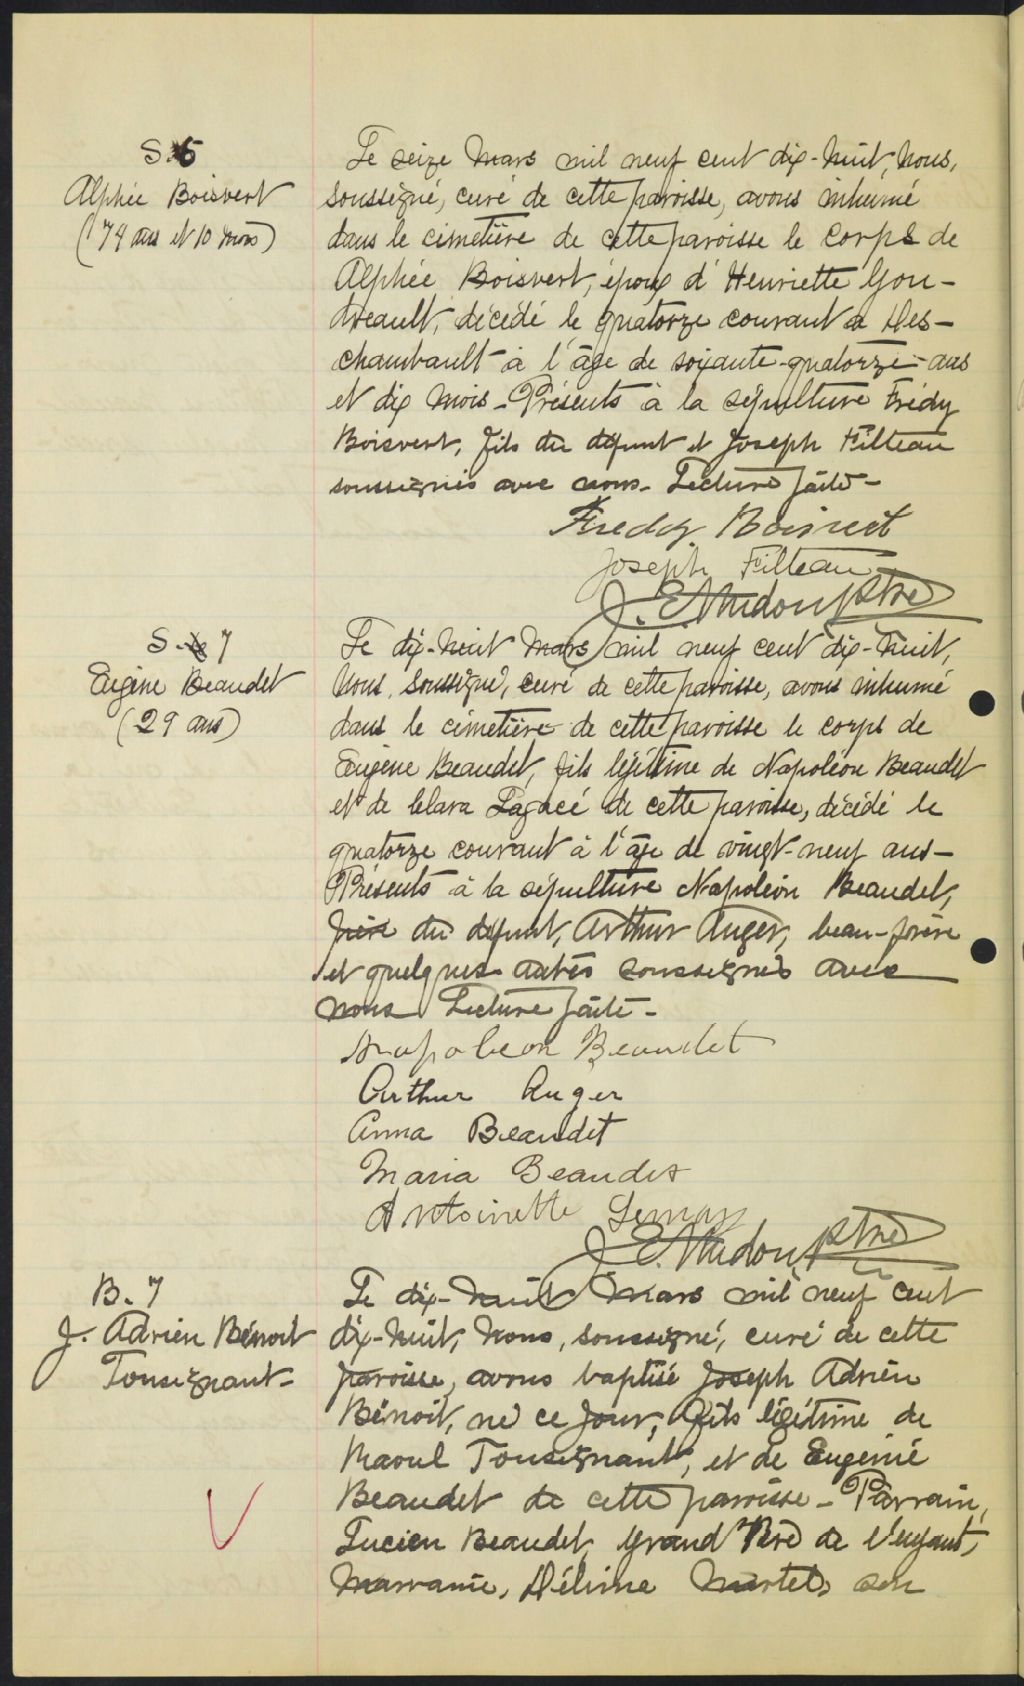 S. 6
Alphée Boisvert
(74 ans et 10 mois)
Le seize Mars mil neuf cent dix-huit, Nous,
soussigné, curé de cette paroisse, avons inhumé
dans le cimetière de cette paroisse le corps de
Alphée Boisvert, époux d'Henriette Gou-
dreault, décédé le quatorze courant à Des-
chambault à l'âge de soixante-quatorze ans
et dix mois - Présents à la sépulture Frédy
Boisvert, fils du défunt et Joseph Filteau
soussignés avec nous. Lecture faite -
Fredy Boisvert
Joseph Filteau
Ptre
S. 7
Eugène Beaudet
(29 ans)
Le dix-huit Mars mil neuf cent dix-huit,
Nous, soussigné, curé de cette paroisse, avons inhumé
dans le cimetière de cette paroisse le corps de
Eugène Beaudet, fils légitime de Napoléon Beaudet
et de Clara Lagacé de cette paroisse, décédé le
quatorze courant à l'âge de vingt-neuf ans -
Présents à la sépulture Napoléon Beaudet,
père du défunt, Arthur Auger, beau-frère
et quelques autres soussignés avec
nous Lecture faite -
Napoleon Beaudet
Arthur Auger
Anna Beaudet
Maria Beaudet
Antoinette Lemay
Ptre
B. 7
J. Adrien Bénoit
Tousignant -
Le dix-huit Mars mil neuf cent
dix-huit, Nous, soussigné, curé de cette
paroisse, avons baptisé Joseph Adrien
Bénoit, né ce jour, fils légitime de
Raoul Tousignant, et de Eugénie
Beaudet de cette paroisse - Parrain,
Lucien Beaudet, Grand Père de l'enfant,
Marraine, Délima Martel, son